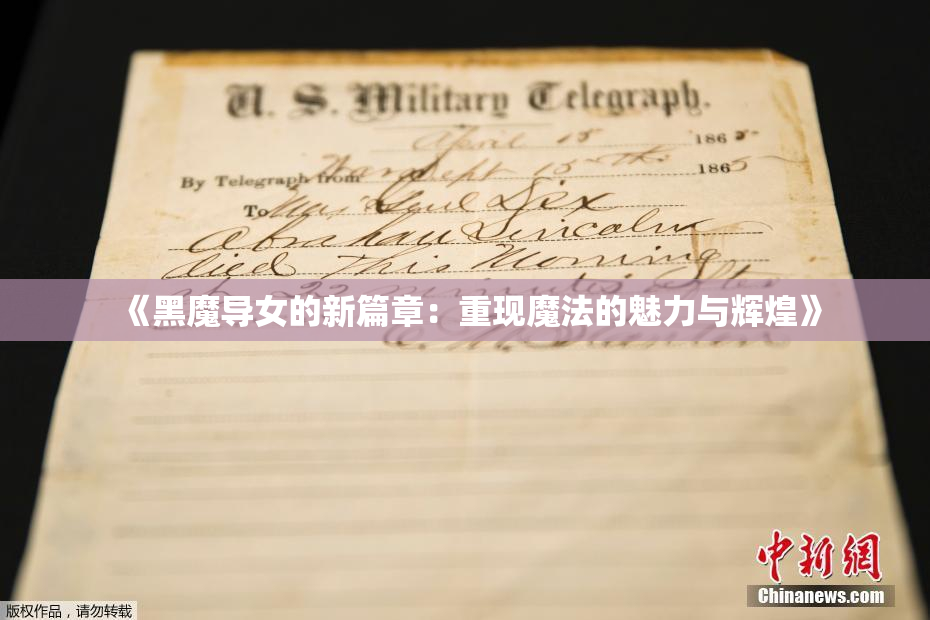 U. S. Military Telegraph.
April 15 1865
By Telegraph from War Dept 15th 1865
To Maj Genl Dix
Abraham Lincoln
died This Morning
at 22 minutes after
《黑魔导女的新篇章：重现魔法的魅力与辉煌》
E. M. Stanton
中新网
Chinanews.com
版权作品，请勿转载